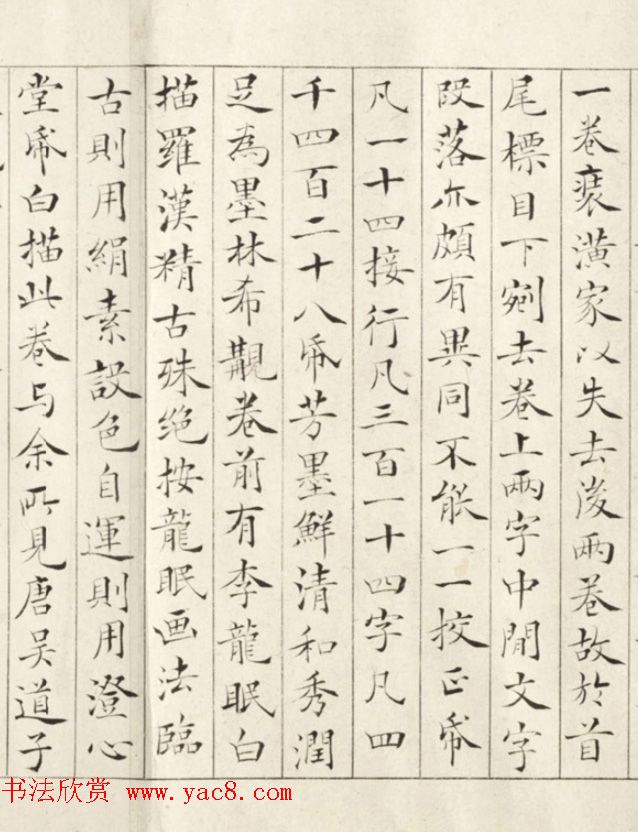 一卷裒潢家以失去後兩卷故於首
尾標目下剜去卷上兩字中間文字
段落亦頗有異同不能一一挍正帋
凡一十四接行凡三百一十四字凡四
千四百二十八帋芳墨鮮清和秀潤
足為墨林希覯卷前有李龍眠白
描羅漢精古殊绝按龍眠画法臨
古則用絹素設色自運則用澄心
堂帋白描此卷与余所見唐吴道子
书法欣赏 www.yac8.com